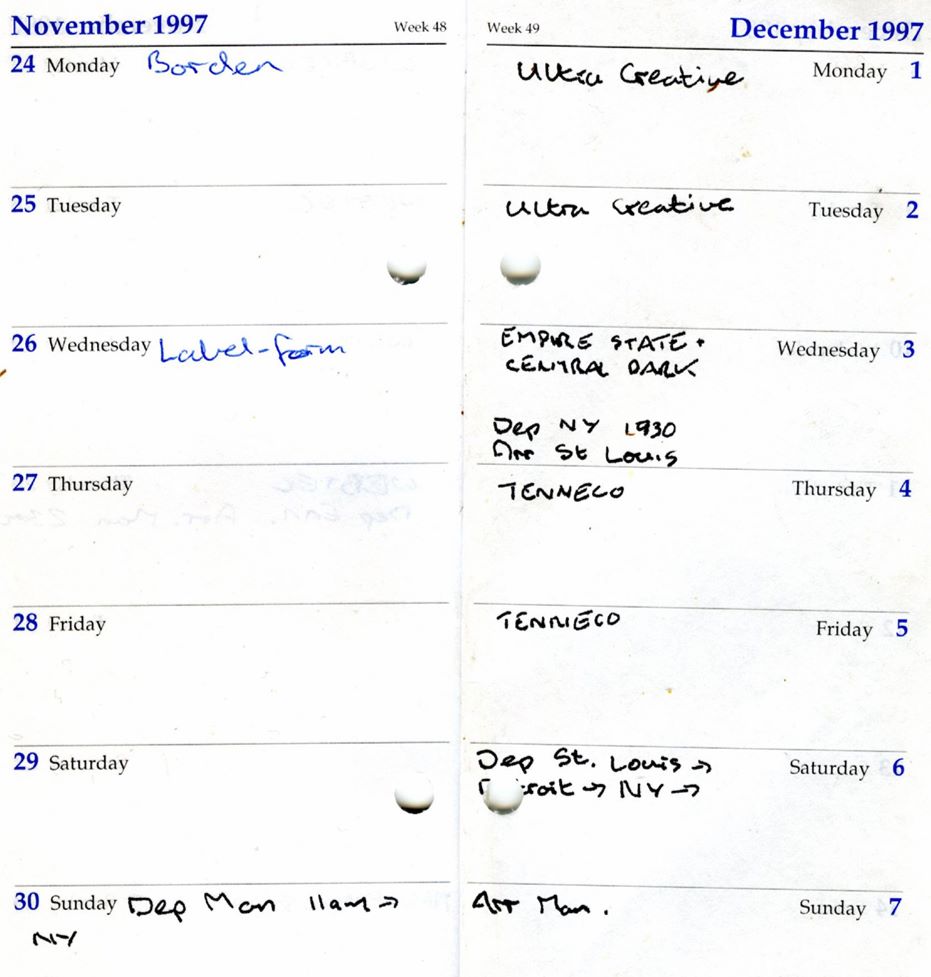 November 1997 Week 48
24 Monday Borden
25 Tuesday
26 Wednesday Label-form
27 Thursday
28 Friday
29 Saturday
30 Sunday Dep Man 11am →
NY
Week 49 December 1997
Ultra Creative Monday 1
Ultra Creative Tuesday 2
EMPIRE STATE + Wednesday 3
CENTRAL PARK
Dep NY 1930
Arr St Louis
TENNECO Thursday 4
TENNECO Friday 5
Dep St. Louis → Saturday 6
Detroit → NY →
Arr Man. Sunday 7